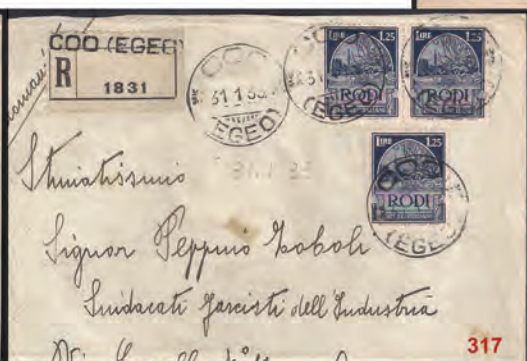 COO (EGEO)
R
1831
COO
31.1.33
(EGEO)
LIRE 1.25
RODI
LIRE 1.25
RODI
LIRE 1.25
RODI
COO
(EGEO)
31.1.33
Stimatissimo
Signor Peppino Zoboli
Sindacati Fascisti dell'Industria
317